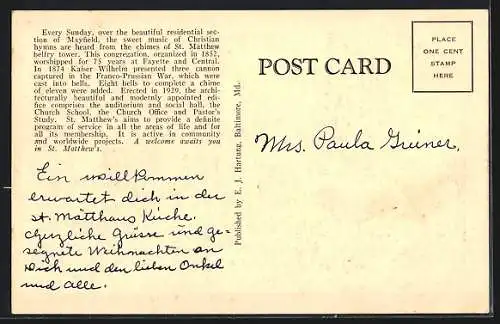 Every Sunday, over the beautiful residential sec-
tion of Mayfield, the sweet music of Christian
hymns are heard from the chimes of St. Matthew
belfry tower. This congregation, organized in 1852,
worshipped for 75 years at Fayette and Central.
In 1874 Kaiser Wilhelm presented three cannon
captured in the Franco-Prussian War, which were
cast into bells. Eight bells to complete a chime
of eleven were added. Erected in 1929, the arch-
itecturally beautiful and modernly appointed edi-
fice comprises the auditorium and social hall, the
Church School, the Church Office and Pastor's
Study. St. Matthew's aims to provide a definite
program of service in all the areas of life and for
all its membership. It is active in community
and worldwide projects. A welcome awaits you
in St. Matthew's.
Ein willkommen
erwartet dich in der
St. Matthäus Kirche.
Herzliche Grüsse und ge=
segnete Weihnachten an
Dich und den lieben Onkel
und alle.
Published by E. J. Hartung, Baltimore, Md.
POST CARD
PLACE
ONE CENT
STAMP
HERE
Mrs. Paula Greiner.